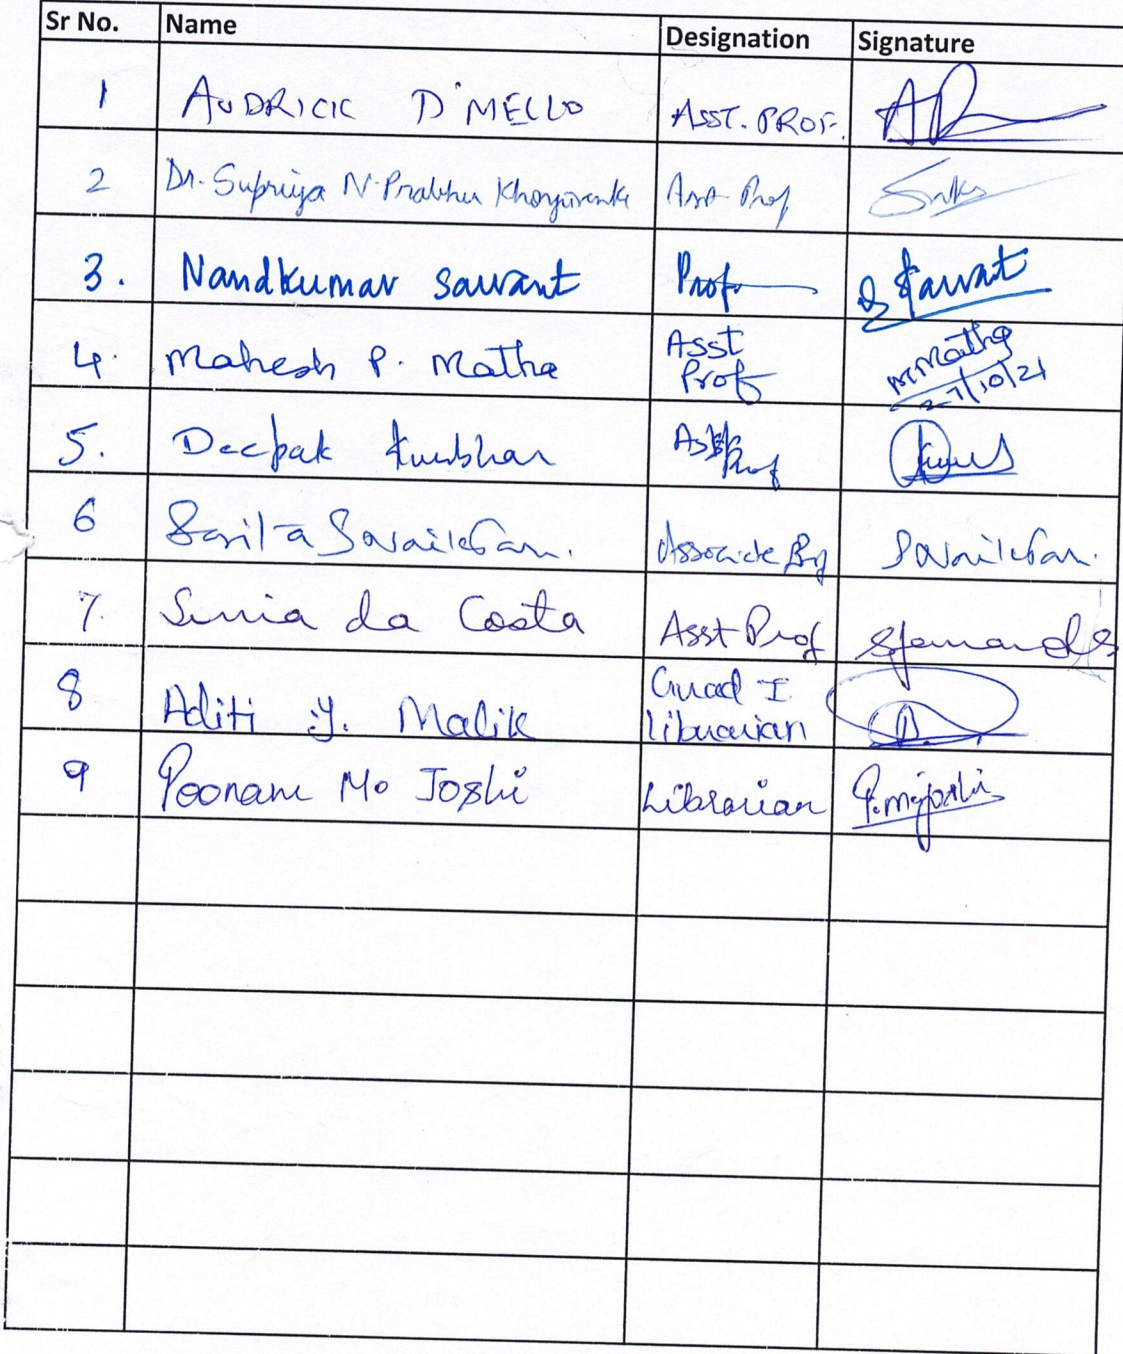 Sr No. Name Designation Signature
1 AUDRICK D'MELLO ASST. PROF.
2 Dr. Supriya N. Prabhu Asst Prof
3. Nandkumar Sawant Prof Sawant
4. Mahesh P. Matha Asst Prof M Matha 27/10/21
5. Deepak Kumbhar Asst Prof
6 Sarita Associate Prof
7. Sunia da Costa Asst Prof Sfernandes
8 Aditi Y. Malik Grad I Librarian
9 Poonam M. Joshi Librarian P.mjoshi